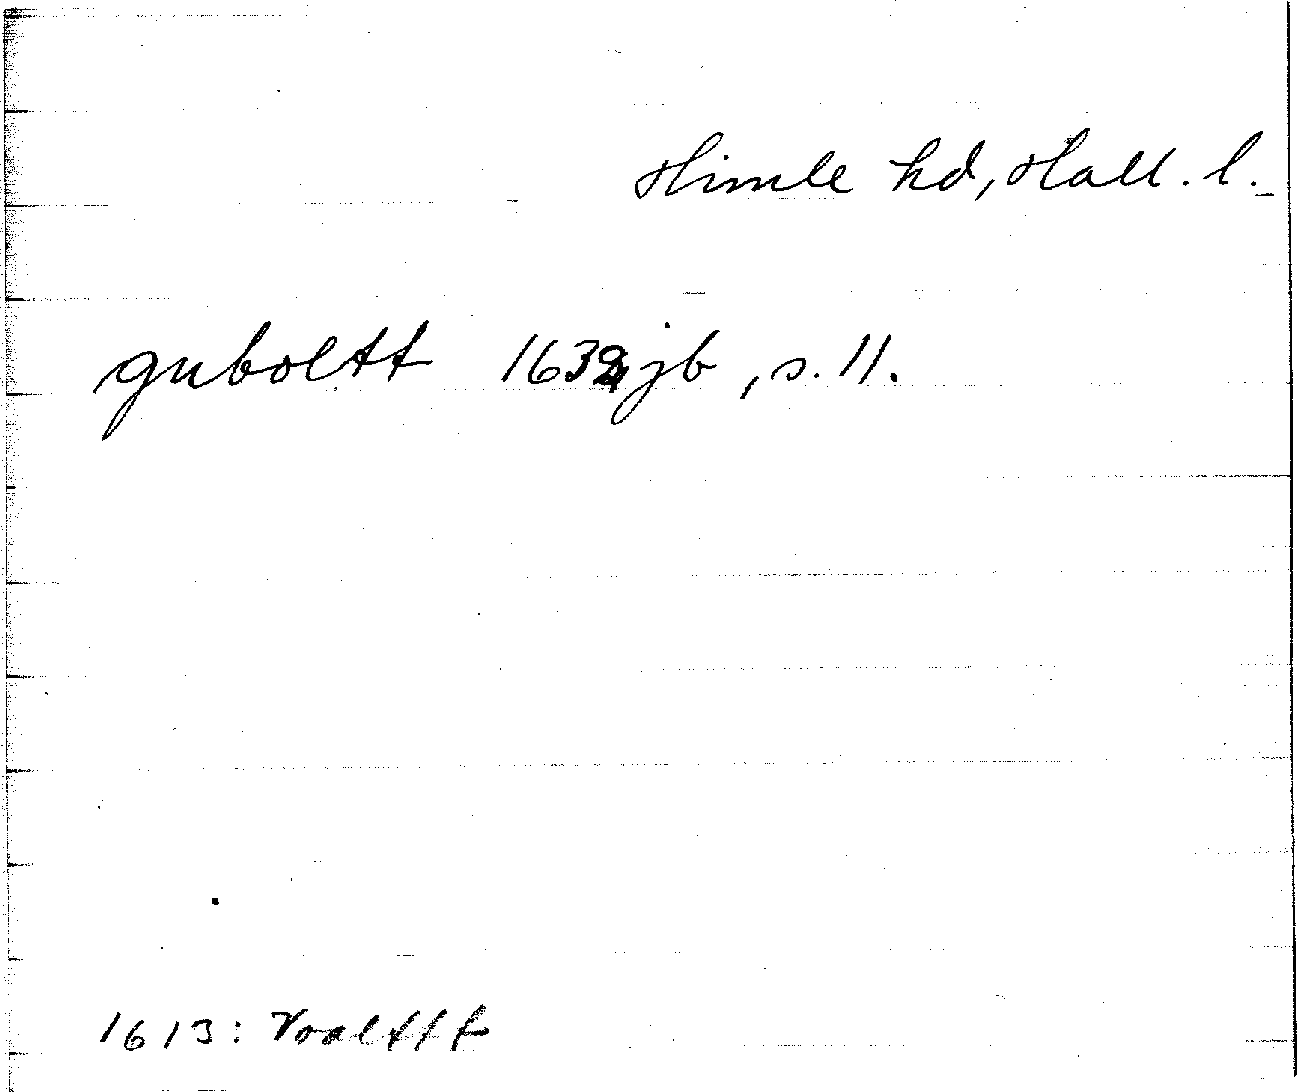 Himle hd, Hall. l.
guboltt 1632 jb, s. 11.
1613: Voalttt